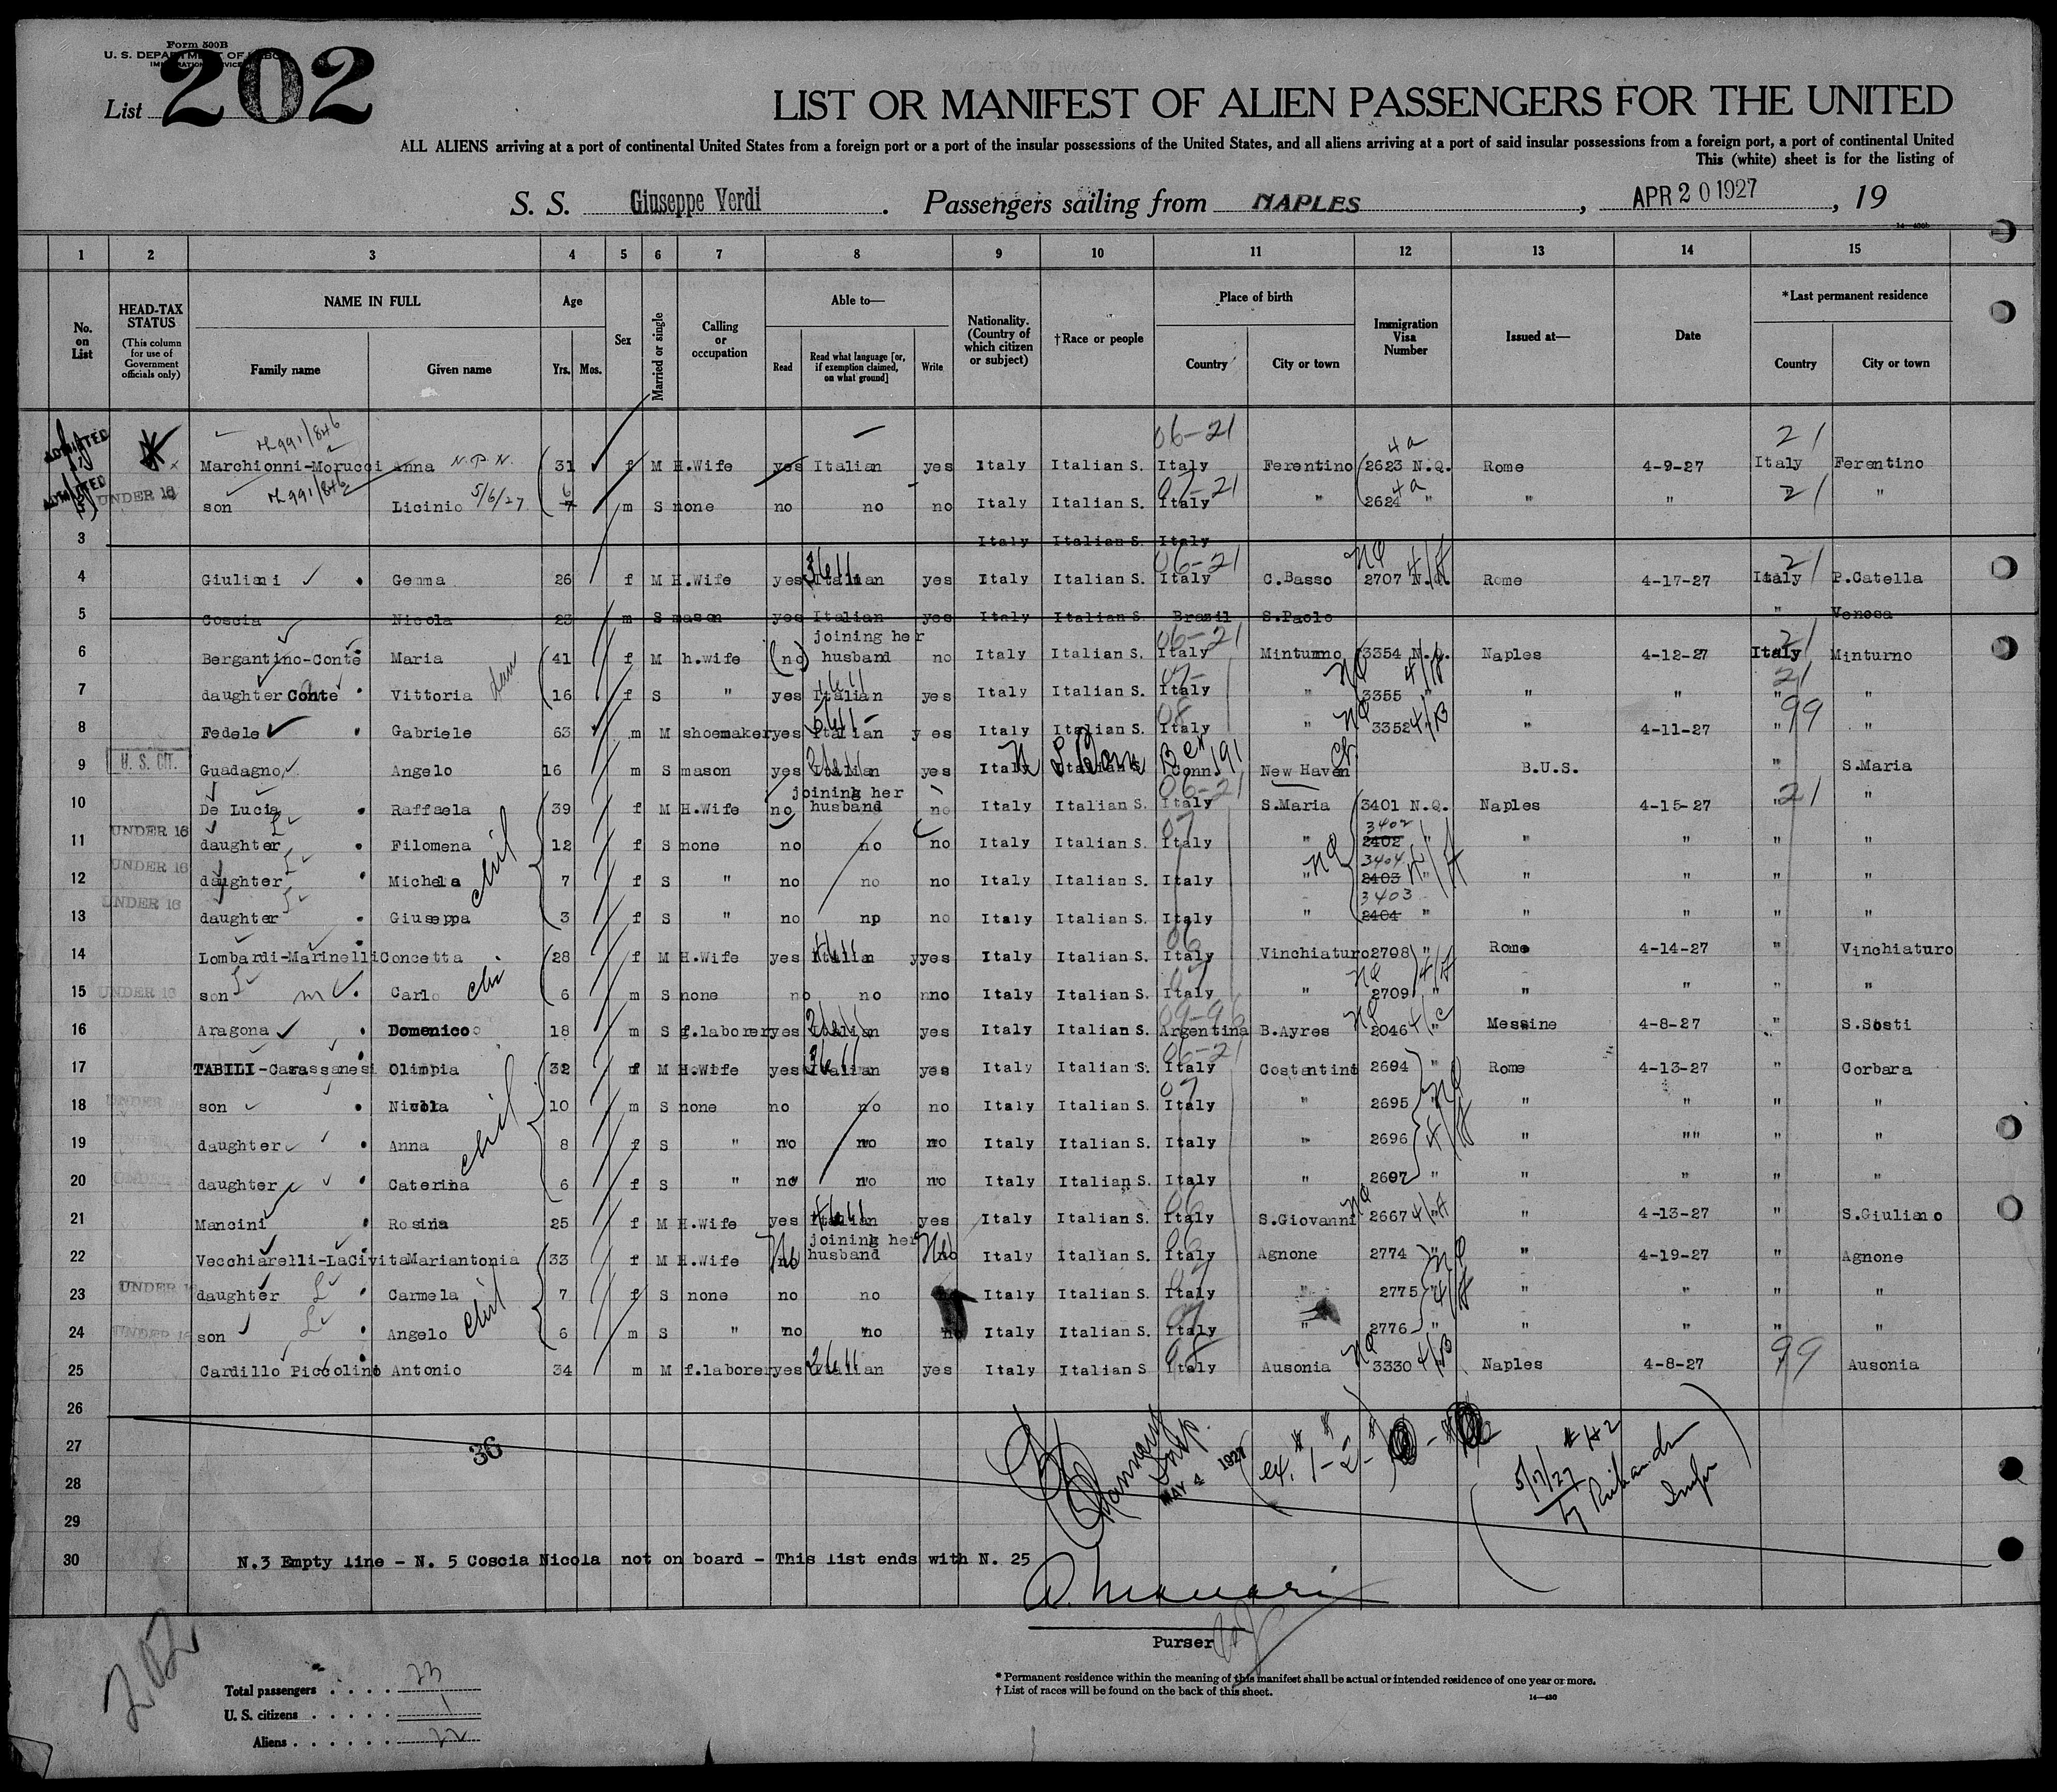 Form 500B
U. S. DEPARTMENT OF LABOR
IMMIGRATION SERVICE
List 202
LIST OR MANIFEST OF ALIEN PASSENGERS FOR THE UNITED
ALL ALIENS arriving at a port of continental United States from a foreign port or a port of the insular possessions of the United States, and all aliens arriving at a port of said insular possessions from a foreign port, a port of continental United
This (white) sheet is for the listing of
S. S. Giuseppe Verdi. Passengers sailing from NAPLES, APR 20 1927, 19
1 2 3 4 5 6 7 8 9 10 11 12 13 14 15
No. on List
HEAD-TAX STATUS (This column for use of Government officials only)
NAME IN FULL
Family name Given name
Age
Yrs. Mos.
Sex
Married or single
Calling or occupation
Able to—
Read Read what language [or, if exemption claimed, on what ground] Write
Nationality. (Country of which citizen or subject)
†Race or people
Place of birth
Country City or town
Immigration Visa Number
Issued at—
Date
*Last permanent residence
Country City or town
06-21 4a 21
ADMITTED Marchionni-Morucci Anna N.P.N. 31 f M H.Wife yes Italian yes Italy Italian S. Italy Ferentino 2623 N.Q. Rome 4-9-27 Italy Ferentino
ADMITTED UNDER 16 son Licinio 5/6/27 7 6 m S none no no no Italy Italian S. Italy " 2624 " " " 21 "
3 Italy Italian S. Italy
4 Giuliani Gemma 26 f M H.Wife yes Italian yes Italy Italian S. Italy C.Basso 2707 N.Q. Rome 4-17-27 Italy P.Catella
5 Coscia Nicola 23 m S mason yes Italian yes Italy Italian S. Brazil S.Paolo " Venosa
6 Bergantino-Conte Maria 41 f M h.wife (no) joining her husband no Italy Italian S. Italy Minturno 3354 N.Q. Naples 4-12-27 Italy Minturno
7 daughter Conte Vittoria 16 f S " yes Italian yes Italy Italian S. Italy " 3355 " " " " "
8 Fedele Gabriele 63 m M shoemaker yes Italian y es Italy Italian S. Italy " 3352 " 4-11-27 " "
9 U. S. CIT. Guadagno Angelo 16 m S mason yes Italian yes Italy Italian S. Conn. New Haven B.U.S. " S.Maria
10 De Lucia Raffaela 39 f M H.Wife no joining her husband no Italy Italian S. Italy S.Maria 3401 N.Q. Naples 4-15-27 " "
11 UNDER 16 daughter Filomena 12 f S none no no no Italy Italian S. Italy " 2402 3402 " " " " "
12 UNDER 16 daughter Michela 7 f S " no no no Italy Italian S. Italy " 2403 3404 " " " " "
13 UNDER 16 daughter Giuseppa 3 f S " no np no Italy Italian S. Italy " 2404 3403 " " " " "
14 Lombardi-Marinelli Concetta 28 f M H.Wife yes Italian yyes Italy Italian S. Italy Vinchiaturo 2708 " Rome 4-14-27 " Vinchiaturo
15 UNDER 16 son Carlo 6 m S none no no nno Italy Italian S. Italy " 2709 " " " " "
16 Aragona Domenico 18 m S f.laborer yes Italian yes Italy Italian S. Argentina B.Ayres 2046 " Messine 4-8-27 " S.Sosti
17 TABILI-Casassanesi Olimpia 32 f M H.Wife yes Italian yes Italy Italian S. Italy Costantino 2694 " Rome 4-13-27 " Corbara
18 UNDER son Nicola 10 m S none no no no Italy Italian S. Italy " 2695 " " " " "
19 daughter Anna 8 f S " no no no Italy Italian S. Italy " 2696 " "" " "
20 UNDER daughter Caterina 6 f S " no no no Italy Italian S. Italy " 2697 " " " " "
21 Mancini Rosina 25 f M H.Wife yes Italian yes Italy Italian S. Italy S.Giovanni 2667 " 4-13-27 " S.Giuliano
22 Vecchiarelli-LaCivita Mariantonia 33 f M H.Wife no joining her husband no Italy Italian S. Italy Agnone 2774 " " 4-19-27 " Agnone
23 UNDER 16 daughter Carmela 7 f S none no no Italy Italian S. Italy " 2775 " " " "
24 UNDER 16 son Angelo 6 m S " no no no Italy Italian S. Italy " 2776 " " " " "
25 Cardillo Piccolino Antonio 34 m M f.laborer yes Italian yes Italy Italian S Italy Ausonia 3330 Naples 4-8-27 99 Ausonia
26
27 36
28 Insp. MAY 4 1927
29
30 N.3 Empty line - N. 5 Coscia Nicola not on board - This list ends with N. 25
Purser
202
Total passengers . . . . 23
U. S. citizens . . . . . 1
Aliens . . . . . . 22
* Permanent residence within the meaning of this manifest shall be actual or intended residence of one year or more.
† List of races will be found on the back of this sheet.
14—430